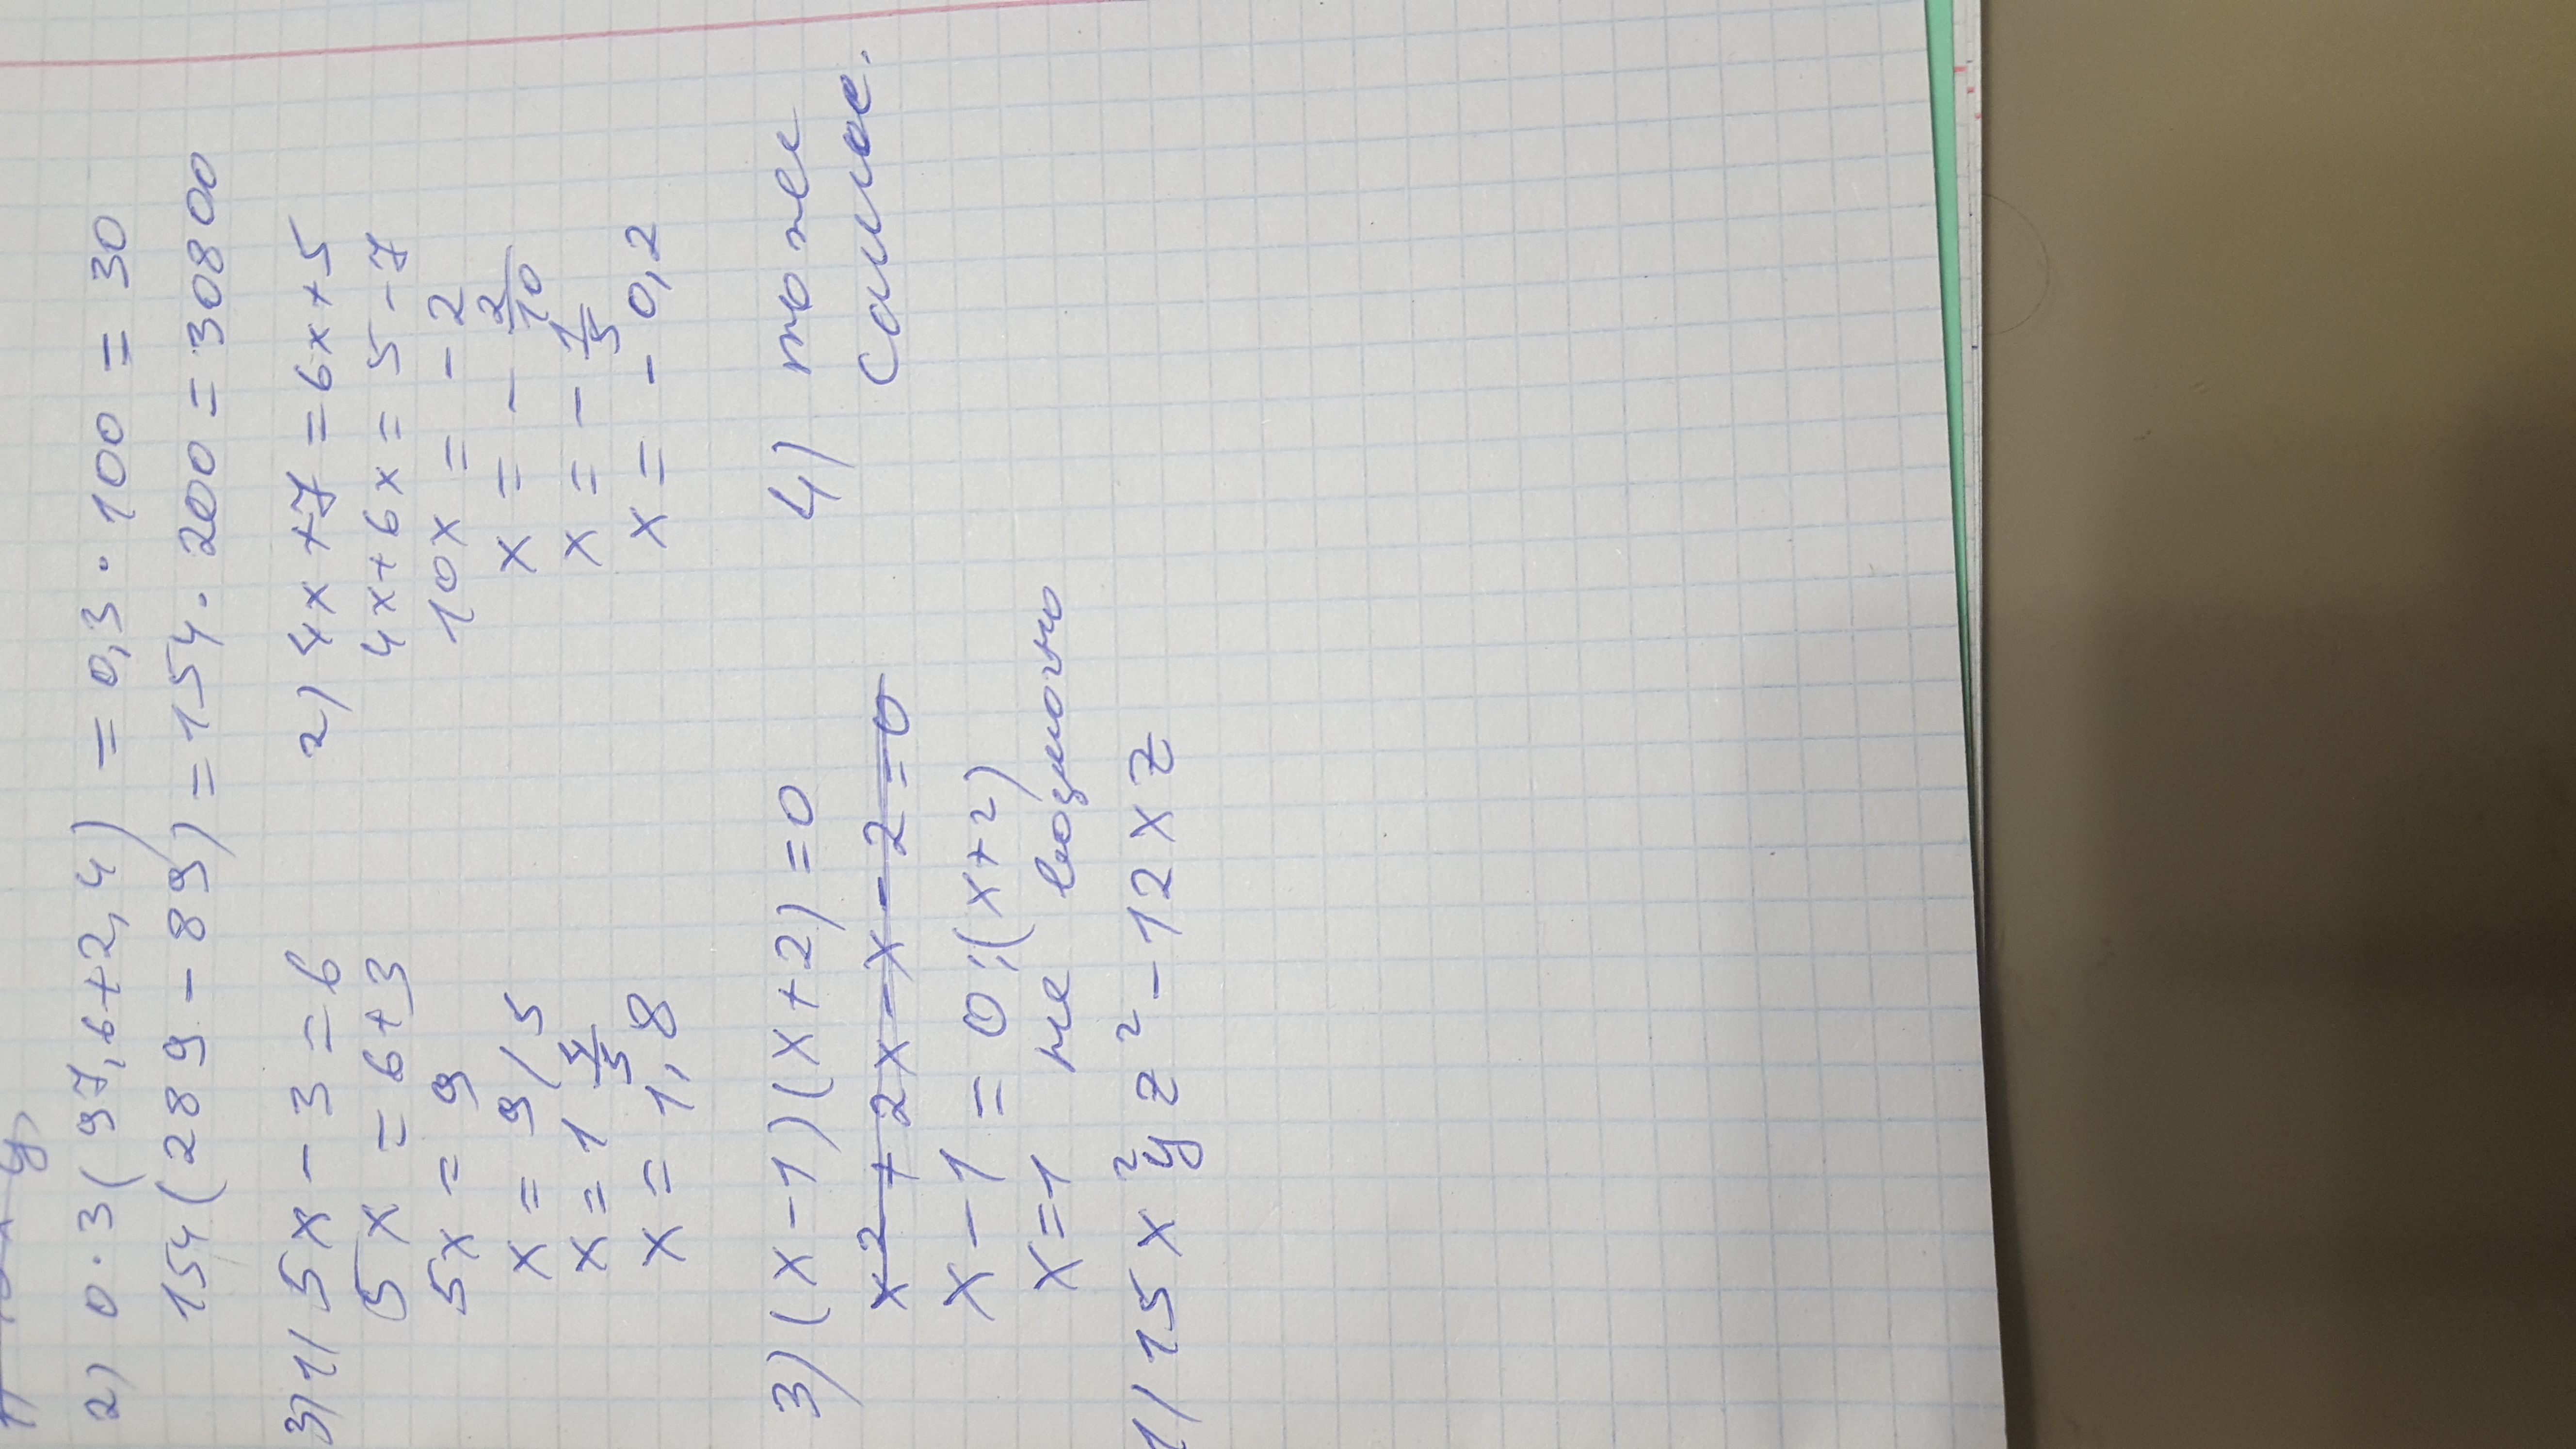 2) 0.3(97,6+2,4) = 0,3·100 = 30
154(289-89) = 154·200 = 30800
3) 1) 5x-3=6
5x=6+3
5x=9
x=9/5
x=1 4/5
x=1,8
2) 4x+7=6x+5
4x+6x=5-7
10x=-2
x=-2/10
x=-1/5
x=-0,2
3) (x-1)(x+2)=0
x²+2x-x-2=0
x-1=0:(x+2)
x=1 не возможно
4) тоже
самое.
1) 15x²yz²-12xz